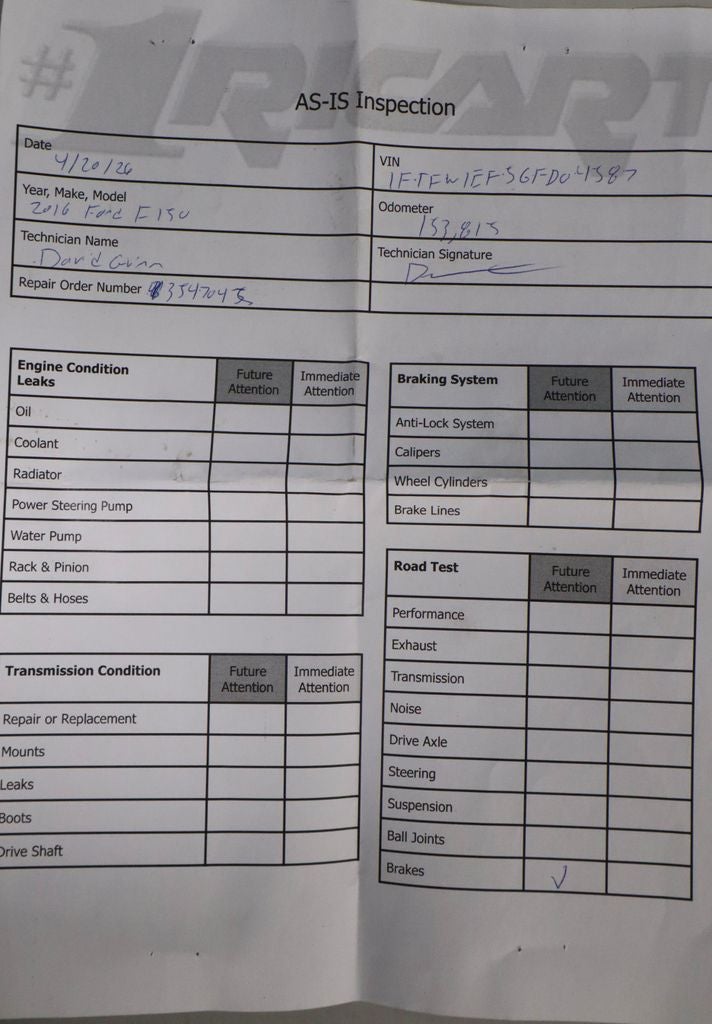 #1RICART
AS-IS Inspection
Date
4/20/26
VIN
1FTFW1EF5GFD04587
Year, Make, Model
2016 Ford F150
Odometer
153,815
Technician Name
David
Technician Signature
Repair Order Number 3547045
Engine Condition
Leaks
Future
Attention
Immediate
Attention
Oil
Coolant
Radiator
Power Steering Pump
Water Pump
Rack & Pinion
Belts & Hoses
Transmission Condition
Future
Attention
Immediate
Attention
Repair or Replacement
Mounts
Leaks
Boots
Drive Shaft
Braking System
Future
Attention
Immediate
Attention
Anti-Lock System
Calipers
Wheel Cylinders
Brake Lines
Road Test
Future
Attention
Immediate
Attention
Performance
Exhaust
Transmission
Noise
Drive Axle
Steering
Suspension
Ball Joints
Brakes ✓